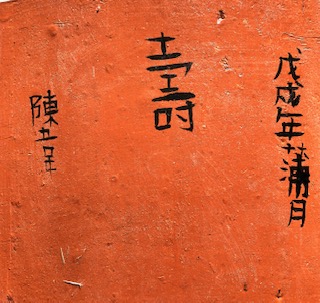 戊戌年蒲月
壽
陳五呈